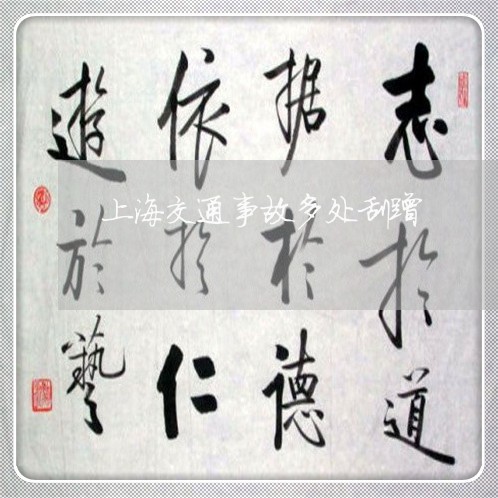 志於道
据於德
依於仁
遊於藝
上海交通事故多处刮蹭